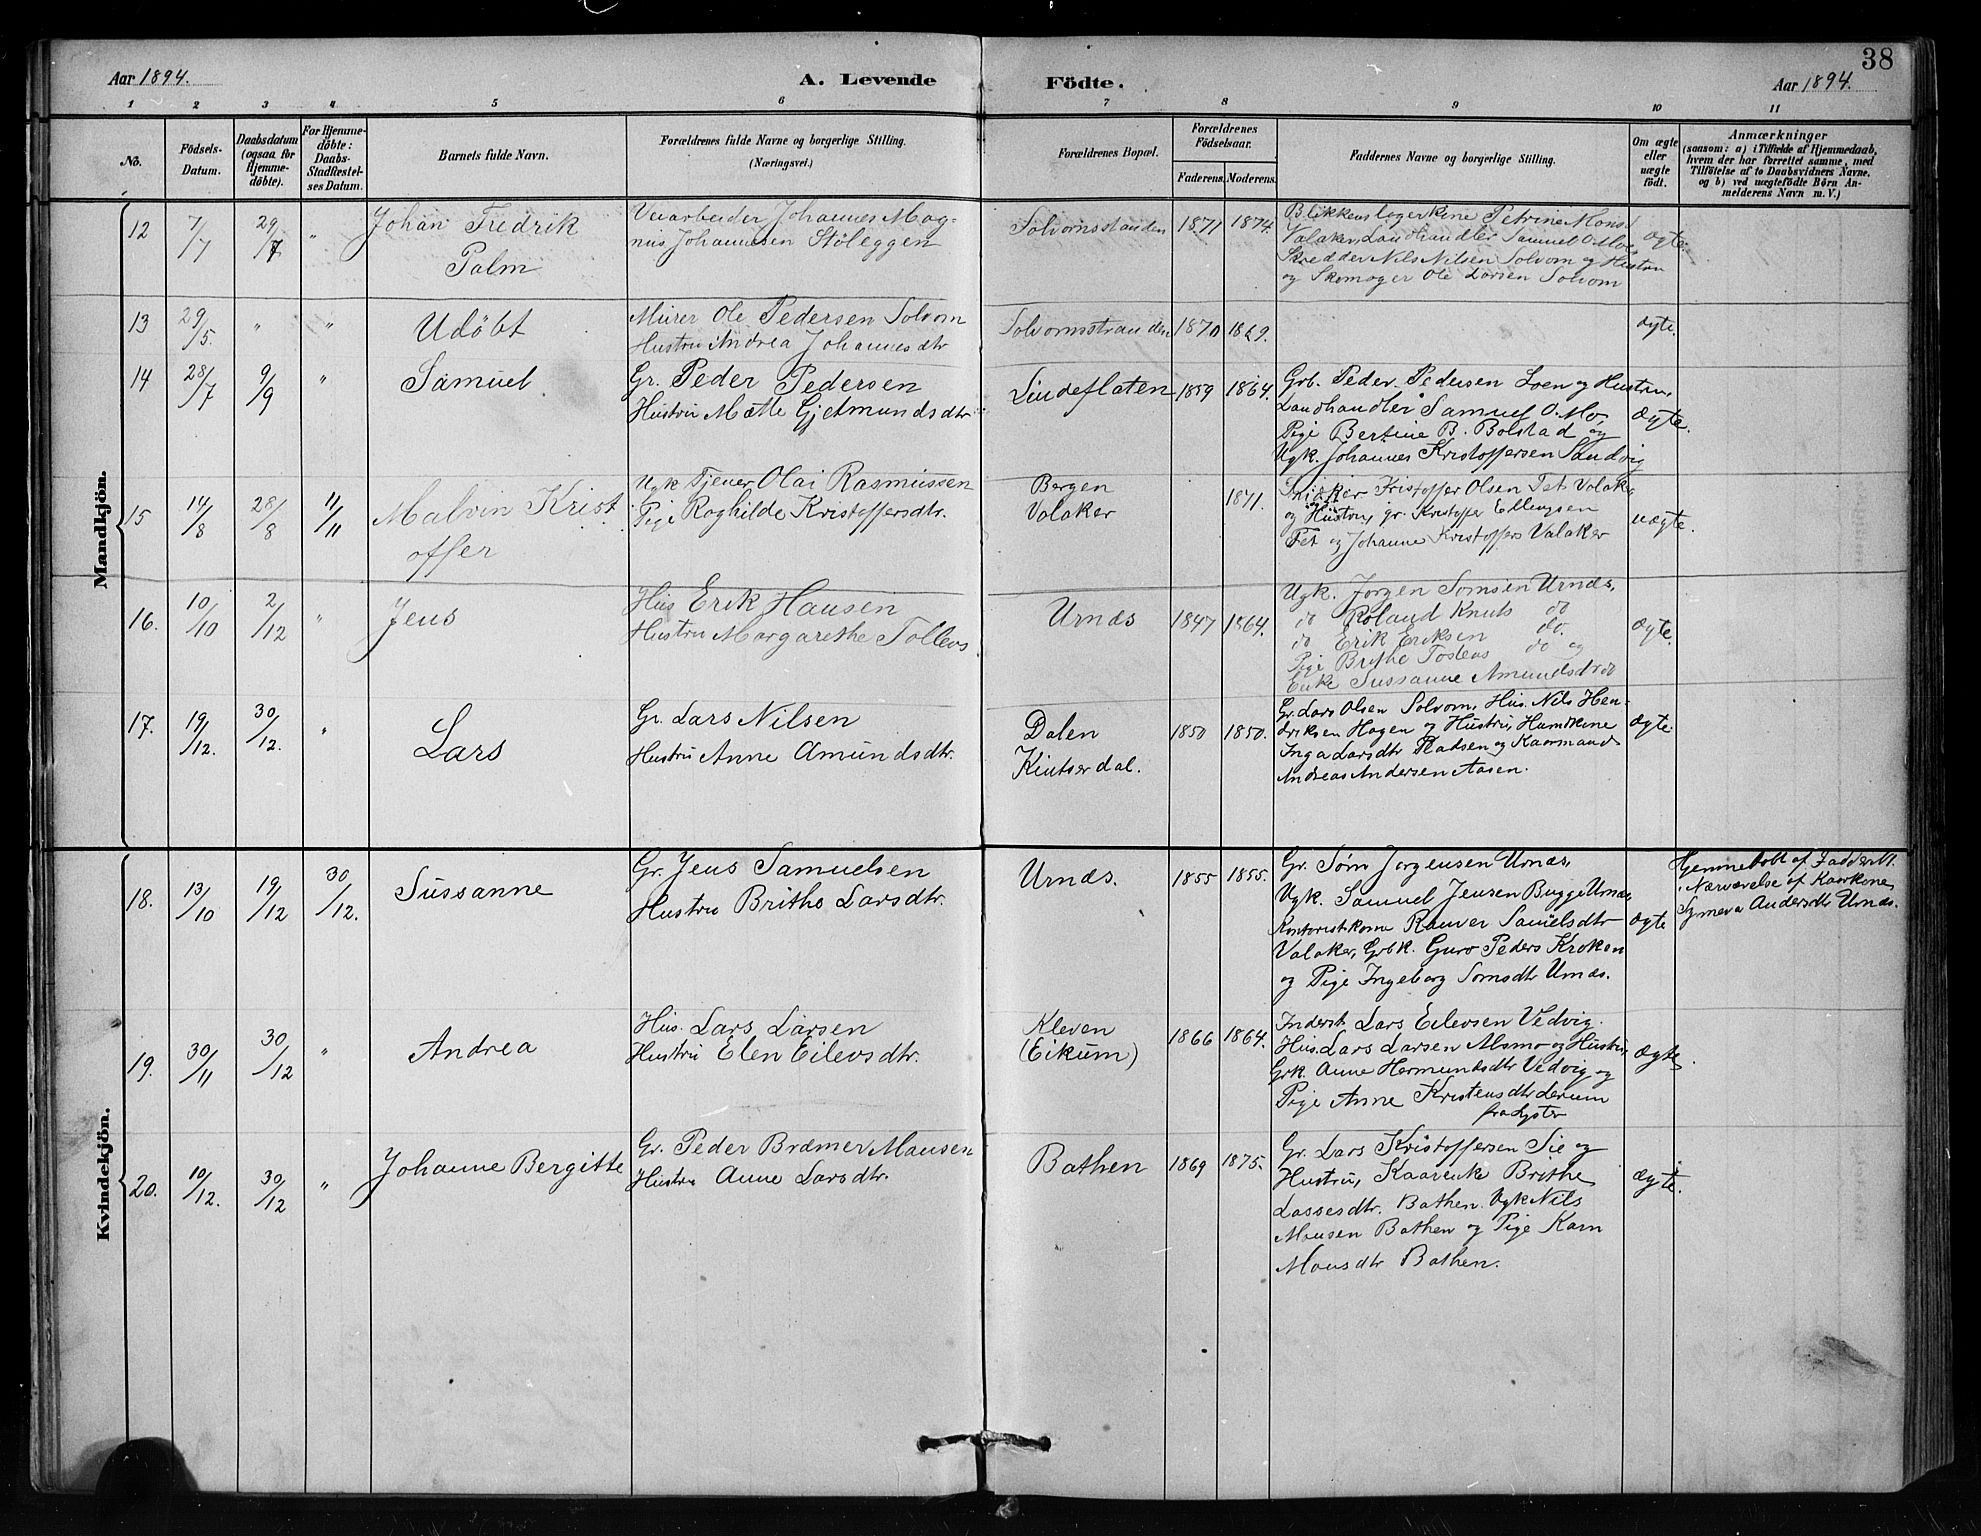 38
Aar 1894.
A. Levende
Födte.
Aar 1894.
1 2 3 4 5 6 7 8 9 10 11
No.
Födsels-
Datum.
Daabsdatum
(ogsaa for
Hjemme-
döbte).
For Hjemme-
döbte:
Daabs-
Stadfæstel-
ses Datum.
Barnets fulde Navn.
Forældrenes fulde Navne og borgerlige Stilling.
(Næringsvei.)
Forældrenes Bopæl.
Forældrenes
Födselsaar.
Faderens. Moderens.
Faddernes Navne og borgerlige Stilling.
Om ægte
eller
uægte
födt.
Anmærkninger
(saasom: a) i Tilfælde af Hjemmedaab,
hvem der har forrettet samme, med
Tilföielse af to Daabsvidners Navne,
og b) ved uægtefödte Börn An-
melderens Navn m. V.)
Mandkjön.
12 7/7 29/7 "
Johan Fredrik
Palm
Veiarbeider Johannes Mag-
nus Johannesen Stöleggen
Solvornsstranden 1871 1874.
Blikkenslagerkone Petrine Mons
Valaker, Landhandler Samuel O. Mo,
Skredder Nils Nilsen Solvorn og Hustru
og Skomager Ole Larsen Solvorn
ægte.
13 29/5. " "
Udöbt
Murer Ole Pedersen Solvorn
Hustru Andrea Johannesdtr
Solvornsstranden 1870 1869.
ægte.
14 28/7 9/9 "
Samuel
Gr. Peder Pedersen
Hustru Mætte Gjetmundsdtr.
Lindeflaten 1859 1864.
Grb. Peder Pedersen Loen og Hustru,
Landhandler Samuel O. Mo,
Pige Bertine B. Bolstad og
Ugk. Johannes Kristoffersen Sandvig
ægte.
15 14/8 28/8 11/11
Malvin Krist
offer
Ugk Tjener Olai Rasmussen
Pige Raghilde Kristoffersdtr.
Bergen
Valaker
1871.
Snikker Kristoffer Olsen Fet Valaker
og Hustru, gr. Kristoffer Ellingsen
Fet og Johanne Kristoffers Valaker
uægte.
16. 10/10 2/12 "
Jens
Hus. Erik Hansen
Hustru Margarethe Tollevs.
Urnæs 1847 1864.
Ugk. Jörgen Sörnsen Urnæs,
do Roland Knuts do
do Erik Eriksen do.
Pige Brithe Tostens do og
Enke Sussanne Amundsdtr do
ægte.
17. 19/12. 30/12. "
Lars
Gr. Lars Nilsen
Hustru Anne Amundsdtr.
Dalen
Kintserdal.
1850 1850.
Gr. Lars Olsen Solvorn, Hus. Nils Hen-
driksen Hagen og Hustru, Husmkone
Inga Larsdtr Pladsen og Kaarmand
Andreas Andersen Aasen.
ægte
Kvindekjön.
18. 13/10 19/12 30/12.
Sussanne
Gr. Jens Samuelsen
Hustru Brithe Larsdtr.
Urnæs. 1855 1855.
Gr. Sørn Jørgensen Urnæs,
Ugk. Samuel Jensen Bugge Urnæs,
Kontoristkone Ranver Samuelsdtr
Valaker, Grbk. Guro Peders Kroken
og Pige Ingeborg Sørnsdtr Urnæs.
ægte
Hjemmedöbt af Fadder No 1.
i Nærværelse af Kaarkone
Synneva Andersdtr Urnæs.
19. 30/11 30/12 "
Andrea
Hus. Lars Larsen
Hustru Elen Eilevsdtr.
Kleven
(Eikum)
1866 1864.
Inderst. Lars Eilevsen Vedvig.
Hus. Lars Larsen Alsmo og Hustru,
Grk. Anne Hermundsdtr Vedvig og
Pige Anne Kristensdtr Lerum
fra Lyster
ægte
20. 10/12. 30/12 "
Johanne Bergitte
Gr. Peder Bræmer Monsen
Hustru Anne Larsdtr.
Bathen 1869 1875.
Gr. Lars Kristoffersen Sie og
Hustru, Kaarenke Brithe
Lassesdtr. Bathen. Ugk Nils
Monsen Bathen og Pige Karn
Monsdtr Bathen.
ægte.